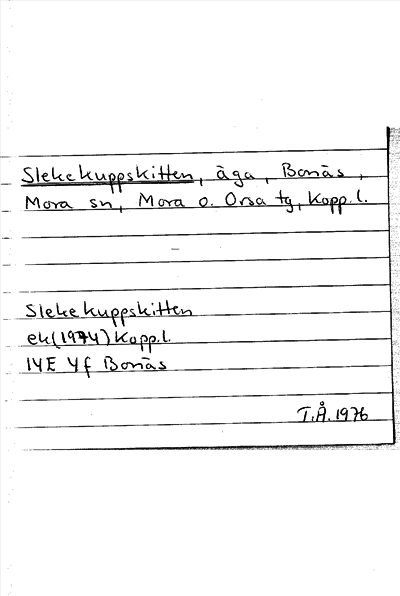 Slekekuppskitten, äga, Bonäs,
Mora sn, Mora o. Orsa tg, Kopp.l.
Slekekuppskitten
ek(1974) Kopp.l.
14E 4f Bonäs
T.Å.1976